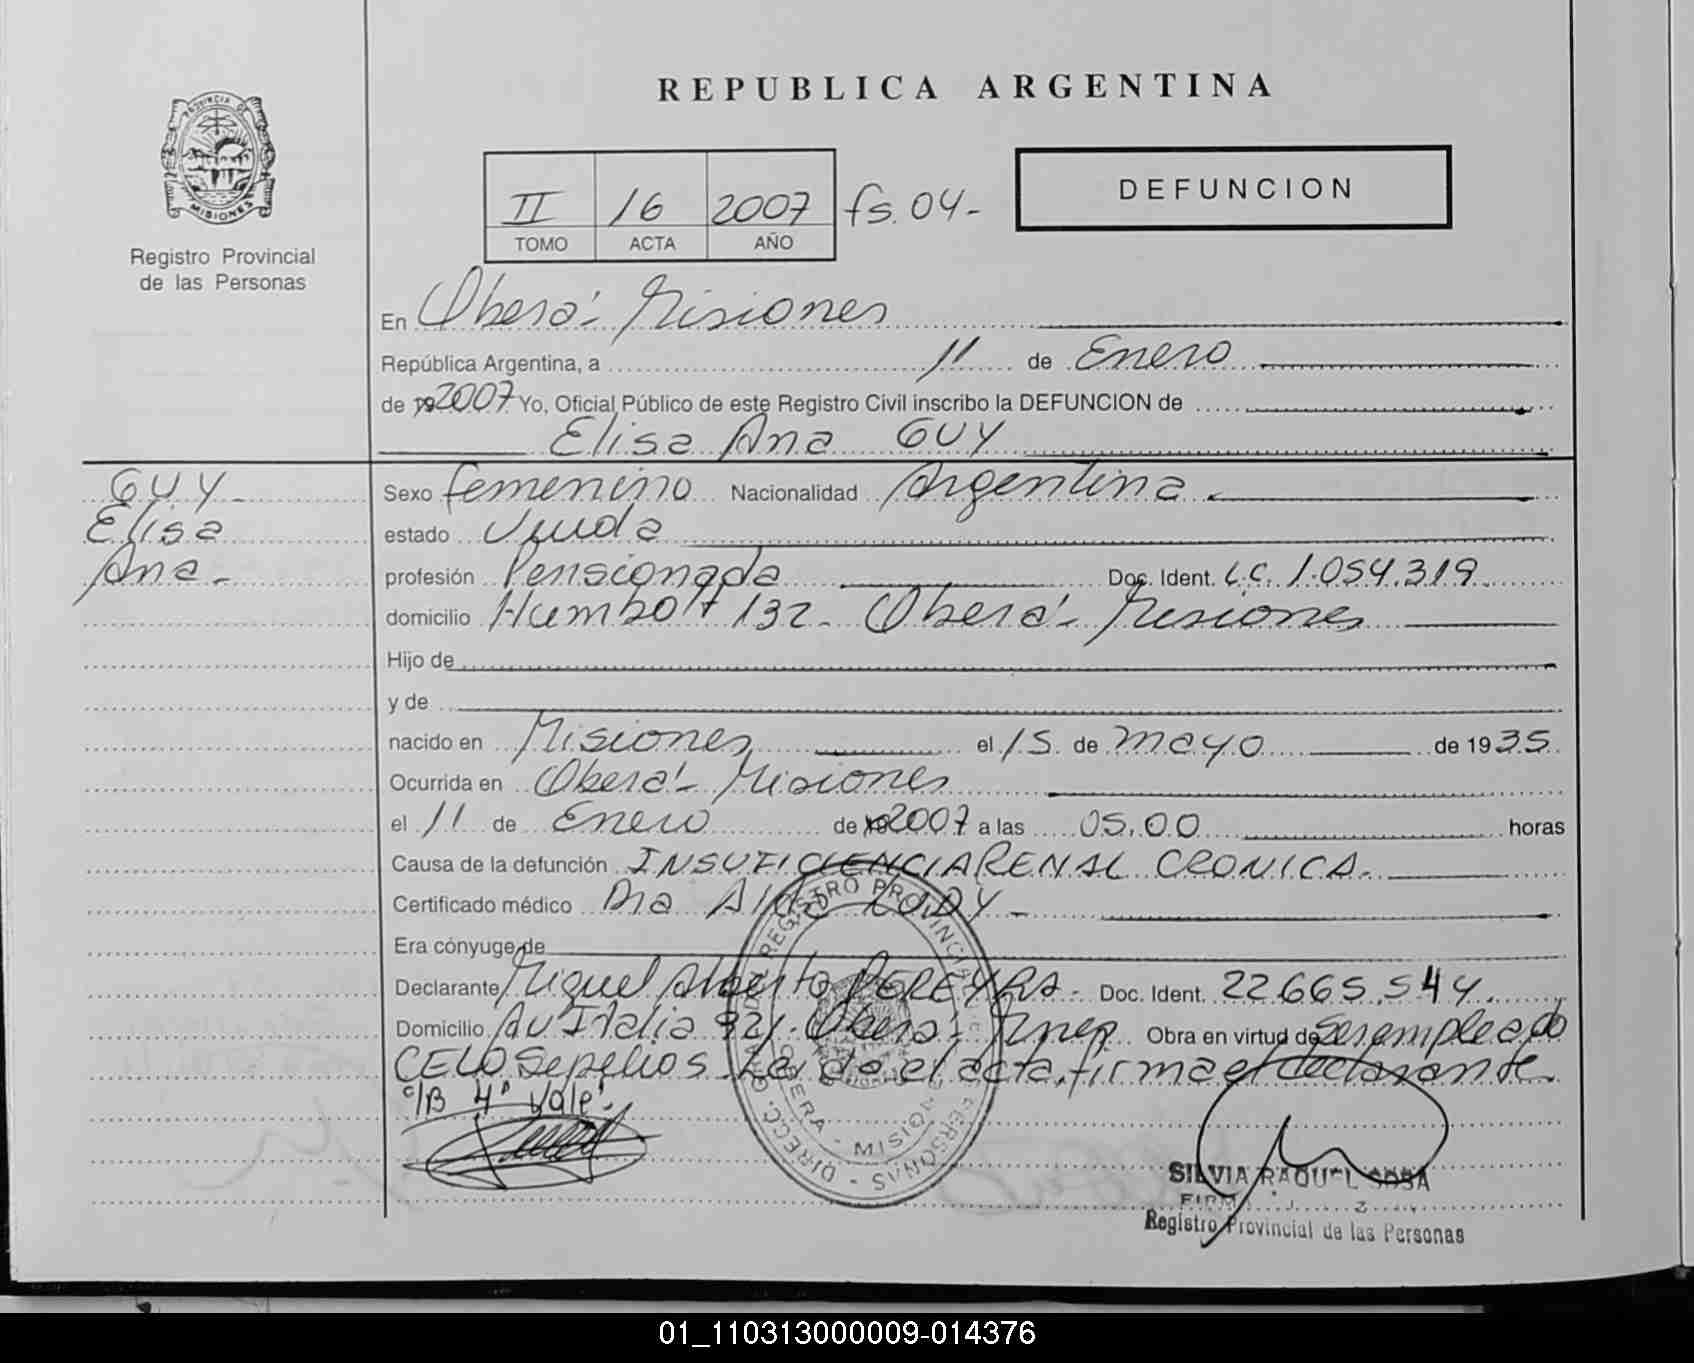 REPUBLICA ARGENTINA
PROVINCIA DE
MISIONES
Registro Provincial
de las Personas
II 16 2007 fs. 04-
TOMO ACTA AÑO
DEFUNCION
En Oberá - Misiones
República Argentina, a 11 de Enero
de 2007 Yo, Oficial Público de este Registro Civil inscribo la DEFUNCION de
Elisa Ana GUY
GUY-
Elisa
Ana-
Sexo femenino Nacionalidad Argentina
estado Viuda
profesión Pensionada Doc. Ident. L.C. 1.054.319
domicilio Humbolt 132- Oberá- Misiones
Hijo de
y de
nacido en Misiones el 15 de mayo de 1935
Ocurrida en Oberá- Misiones
el 11 de Enero de 2007 a las 05.00 horas
Causa de la defunción INSUFICIENCIA RENAL CRONICA.
Certificado médico Dra Alda
Era cónyuge de
Declarante Miguel Alberto PEREYRA- Doc. Ident. 22.665.544.
Domicilio Av Italia Oberá- Mnes Obra en virtud de ser empleado
CELO Sepelios. Leída el acta, firma el declarante.
C/B 4" Vale!
DIRECC. GRAL. REGISTRO PROVINCIAL DE LAS PERSONAS
OBERA - MISIONES
SILVIA RAQUEL SOSA
Registro Provincial de las Personas
01_110313000009-014376